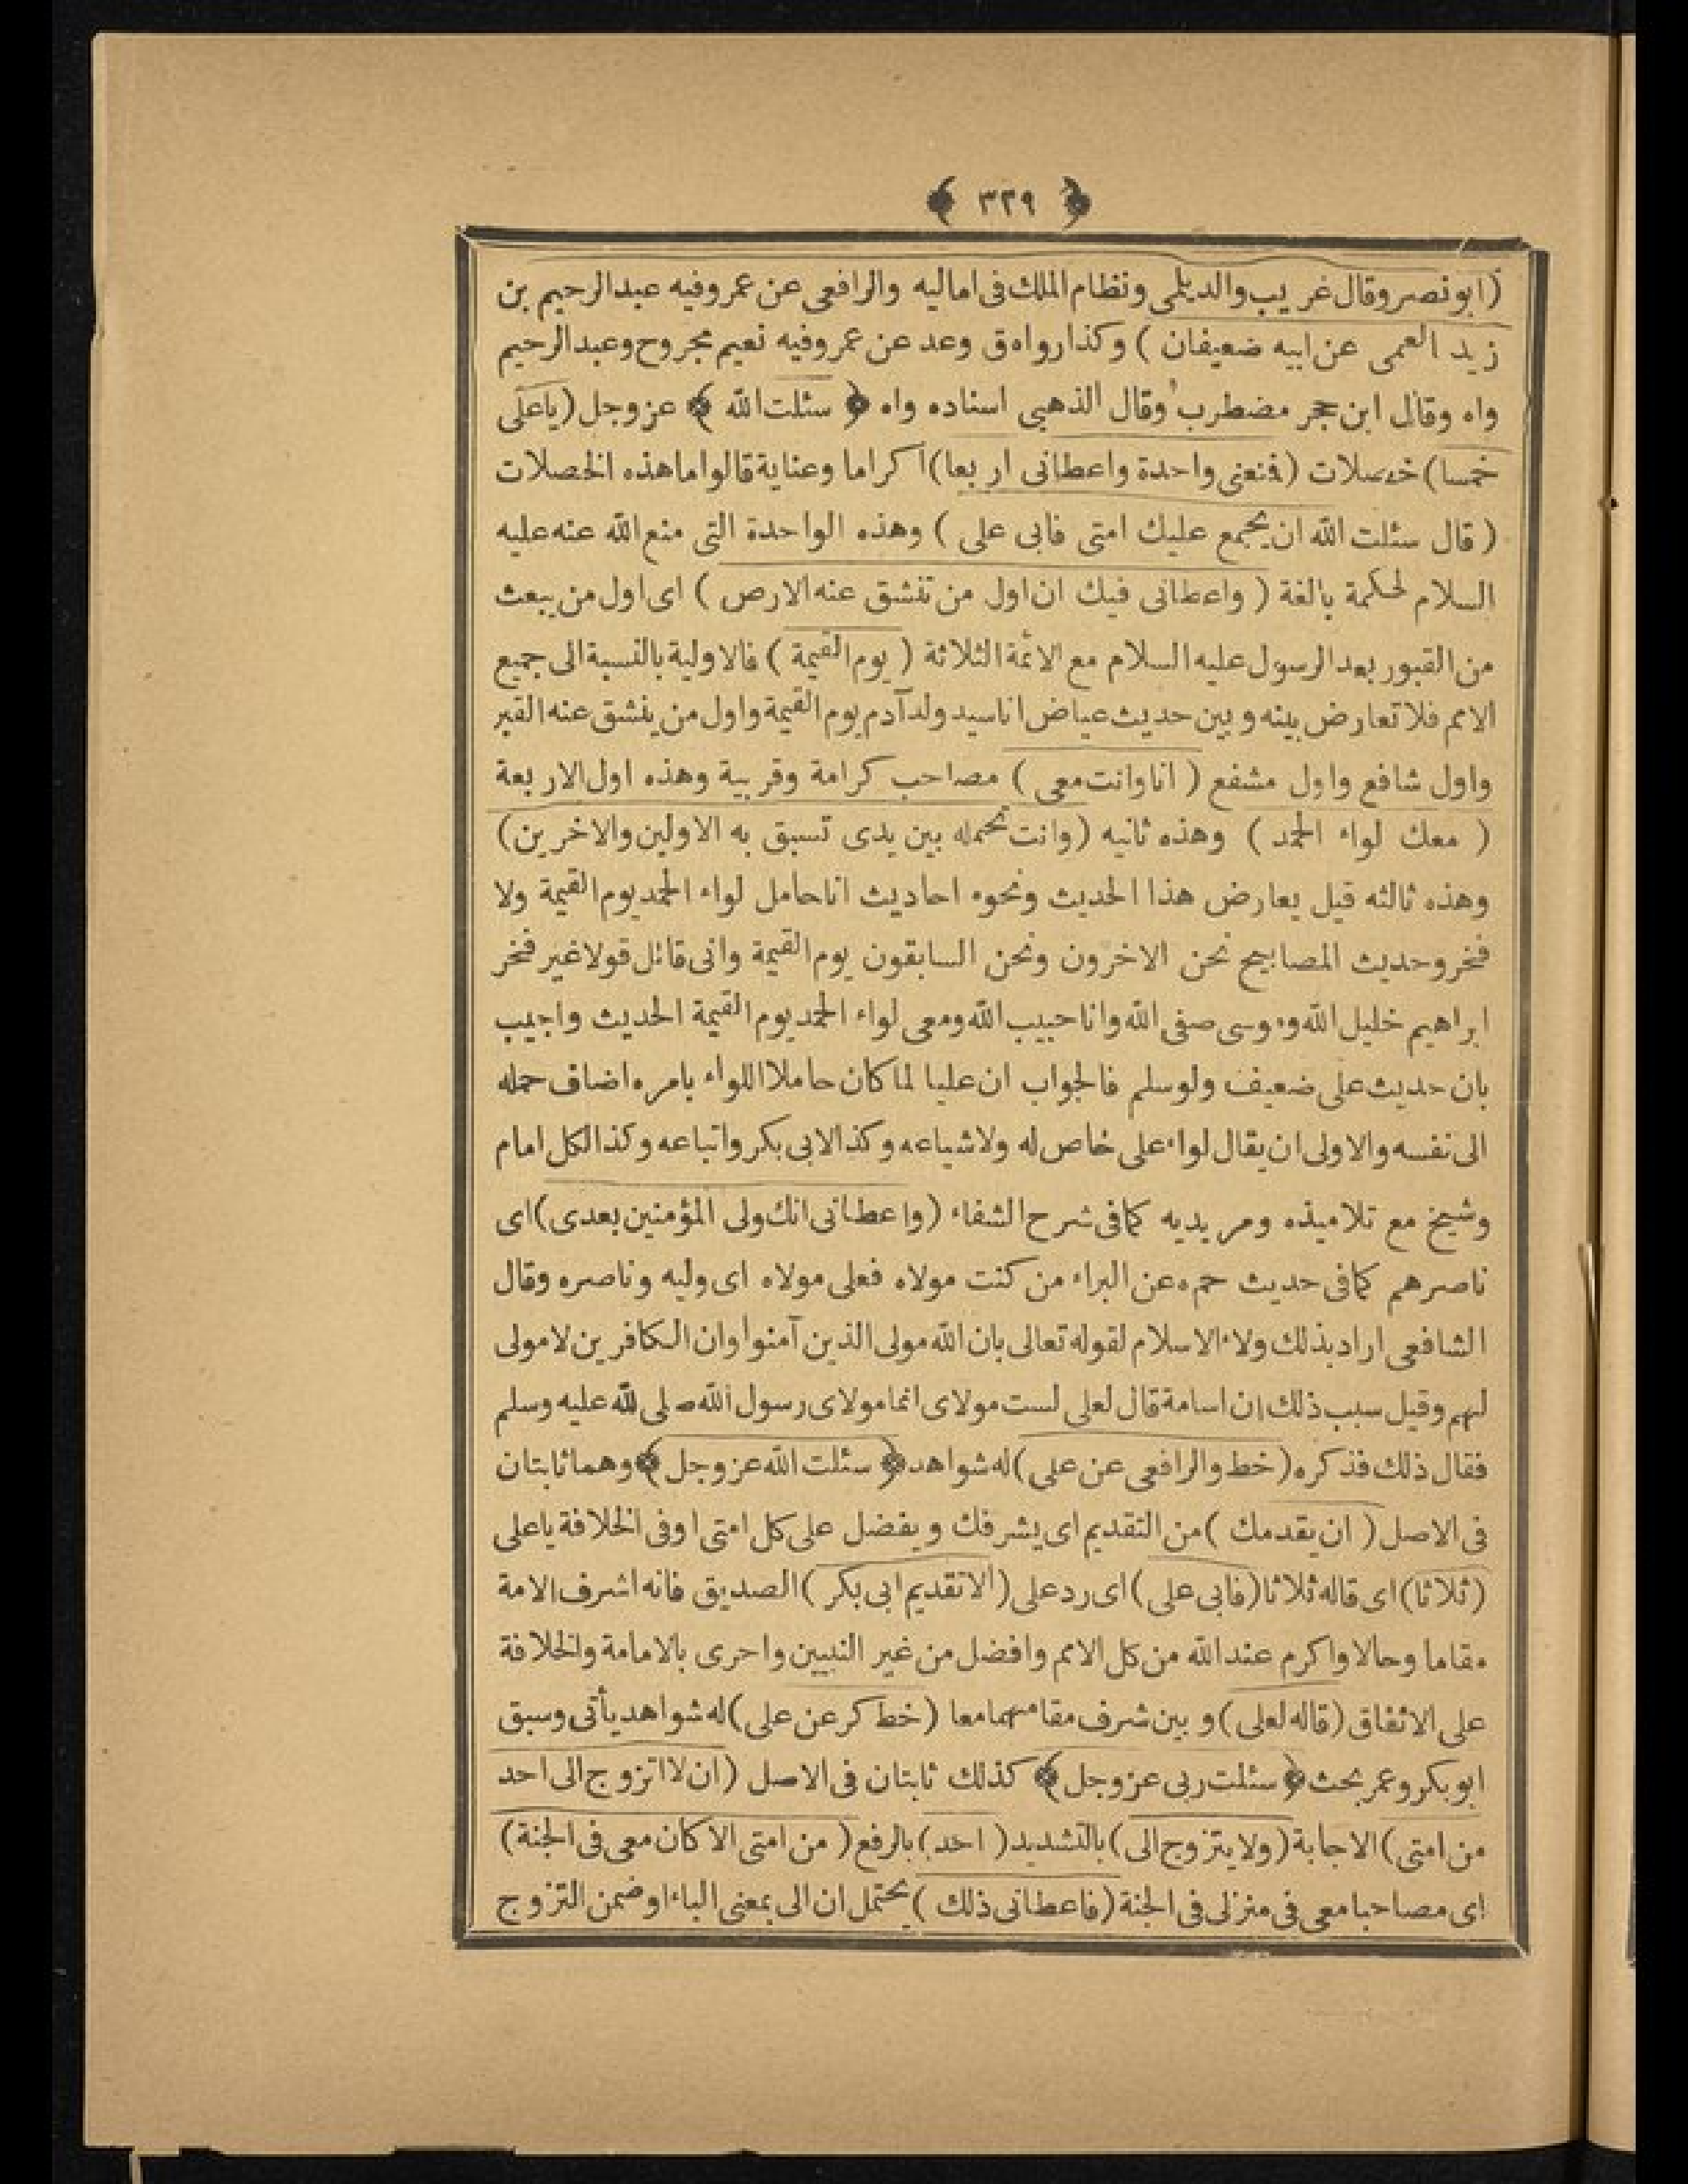 ﴿ ٣٢٩ ﴾
(ابو نصر وقال غريب والديلمى ونظام الملك فى اماليه والرافعى عن عمر وفيه عبد الرحيم بن
زيد العمى عن ابيه ضعيفان) وكذا رواه ق وعد عن عمر وفيه نعيم مجروح وعبد الرحيم
واه وقال ابن حجر مضطرب وقال الذهبى اسناده واه ﴿ سئلت الله ﴾ عز وجل (ياعلى
خمسا) خصلات (فنعنى واحدة واعطانى اربعا) اكراما وعناية قالوا ماهذه الخصلات
(قال سئلت الله ان يجمع عليك امتى فابى على) وهذه الواحدة التى منع الله عنه عليه
السلام لحكمة بالغة (واعطانى فيك ان اول من تنشق عنه الارض) اى اول من يبعث
من القبور بعد الرسول عليه السلام مع الائمة الثلاثة (يوم القيمة) فالاولية بالنسبة الى جميع
الامم فلا تعارض بينه وبين حديث عياض انا سيد ولد آدم يوم القيمة واول من ينشق عنه القبر
واول شافع واول مشفع (انا وانت معى) مصاحب كرامة وقريبة وهذه اول الاربعة
(معك لواء الحمد) وهذه ثانيه (وانت تحمله بين يدى تسبق به الاولين والاخرين)
وهذه ثالثه قيل يعارض هذا الحديث ونحوه احاديث انا حامل لواء الحمد يوم القيمة ولا
فخر وحديث المصابيح نحن الاخرون ونحن السابقون يوم القيمة وانى قائل قولا غير فخر
ابراهيم خليل الله وموسى صفى الله وانا حبيب الله ومعى لواء الحمد يوم القيمة الحديث واجيب
بان حديث على ضعيف ولو سلم فالجواب ان عليا لما كان حاملا اللواء بامره اضاف حمله
الى نفسه والاولى ان يقال لواء على خاص له ولاشياعه وكذا لابى بكر واتباعه وكذا لكل امام
وشيخ مع تلاميذه ومريديه كما فى شرح الشفاء (واعطانى انك ولى المؤمنين بعدى) اى
ناصرهم كما فى حديث حم ه عن البراء من كنت مولاه فعلى مولاه اى وليه وناصره وقال
الشافعى اراد بذلك ولاء الاسلام لقوله تعالى بان الله مولى الذين آمنوا وان الكافرين لا مولى
لهم وقيل سبب ذلك ان اسامة قال لعلى لست مولاى انما مولاى رسول الله صلى لله عليه وسلم
فقال ذلك فذكره (خط والرافعى عن على) له شواهد ﴿ سئلت الله عز وجل ﴾ وهما ثابتان
فى الاصل (ان يقدمك) من التقديم اى يشرفك ويفضل على كل امتى اوفى الخلافة ياعلى
(ثلاثا) اى قاله ثلاثا (فابى على) اى رد على (الا تقديم ابى بكر) الصديق فانه اشرف الامة
مقاما وحالا واكرم عند الله من كل الامم وافضل من غير النبيين واحرى بالامامة والخلافة
على الاتفاق (قاله لعلى) وبين شرف مقامهما معا (خط كر عن على) له شواهد يأتى وسبق
ابو بكر وعمر بحث ﴿ سئلت ربى عز وجل ﴾ كذلك ثابتان فى الاصل (ان لا اتزوج الى احد
من امتى) الاجابة (ولا يتزوج الى) بالتشديد (احد) بالرفع (من امتى الا كان معى فى الجنة)
اى مصاحبا معى فى منزلى فى الجنة (فاعطانى ذلك) يحتمل ان الى بمعنى الباء او ضمن التزوج